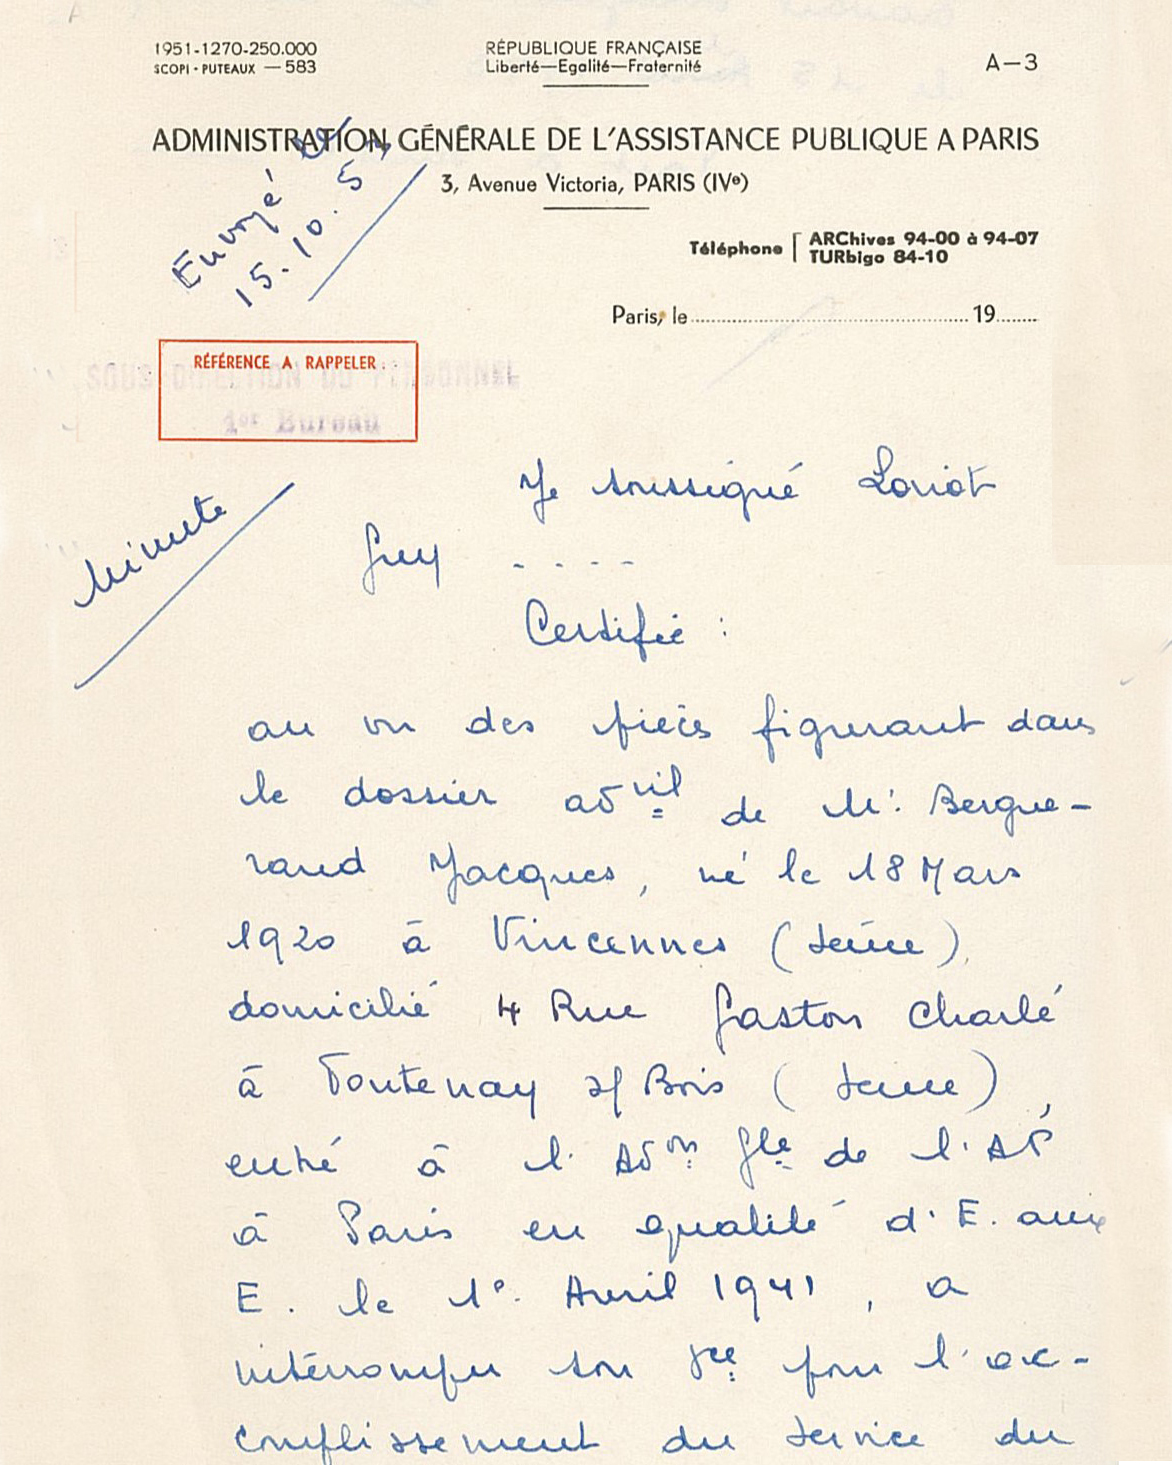 1951-1270-250.000
SCOPI - PUTEAUX — 583
RÉPUBLIQUE FRANÇAISE
Liberté—Egalité—Fraternité
A—3
ADMINISTRATION GÉNÉRALE DE L'ASSISTANCE PUBLIQUE A PARIS
3, Avenue Victoria, PARIS (IVe)
Téléphone
ARChives 94-00 à 94-07
TURbigo 84-10
Envoyé le
15.10.5
Paris, le 19
RÉFÉRENCE A RAPPELER
SOUS-DIRECTION DU PERSONNEL
1er Bureau
Minute
Je soussigné Loriot
Guy ....
Certifie :
au vu des pièces figurant dans
le dossier adif de Mr. Bergue-
raud Jacques, né le 18 Mars
1920 à Vincennes (Seine),
domicilié 4 Rue Gaston Charlé
à Fontenay s/ Bois (Seine),
entré à l'Adon Gle de l'AP
à Paris en qualité d'E. aux
E. le 1o. Avril 1941, a
interrompu son Sce pour l'ac-
complissement du Service du